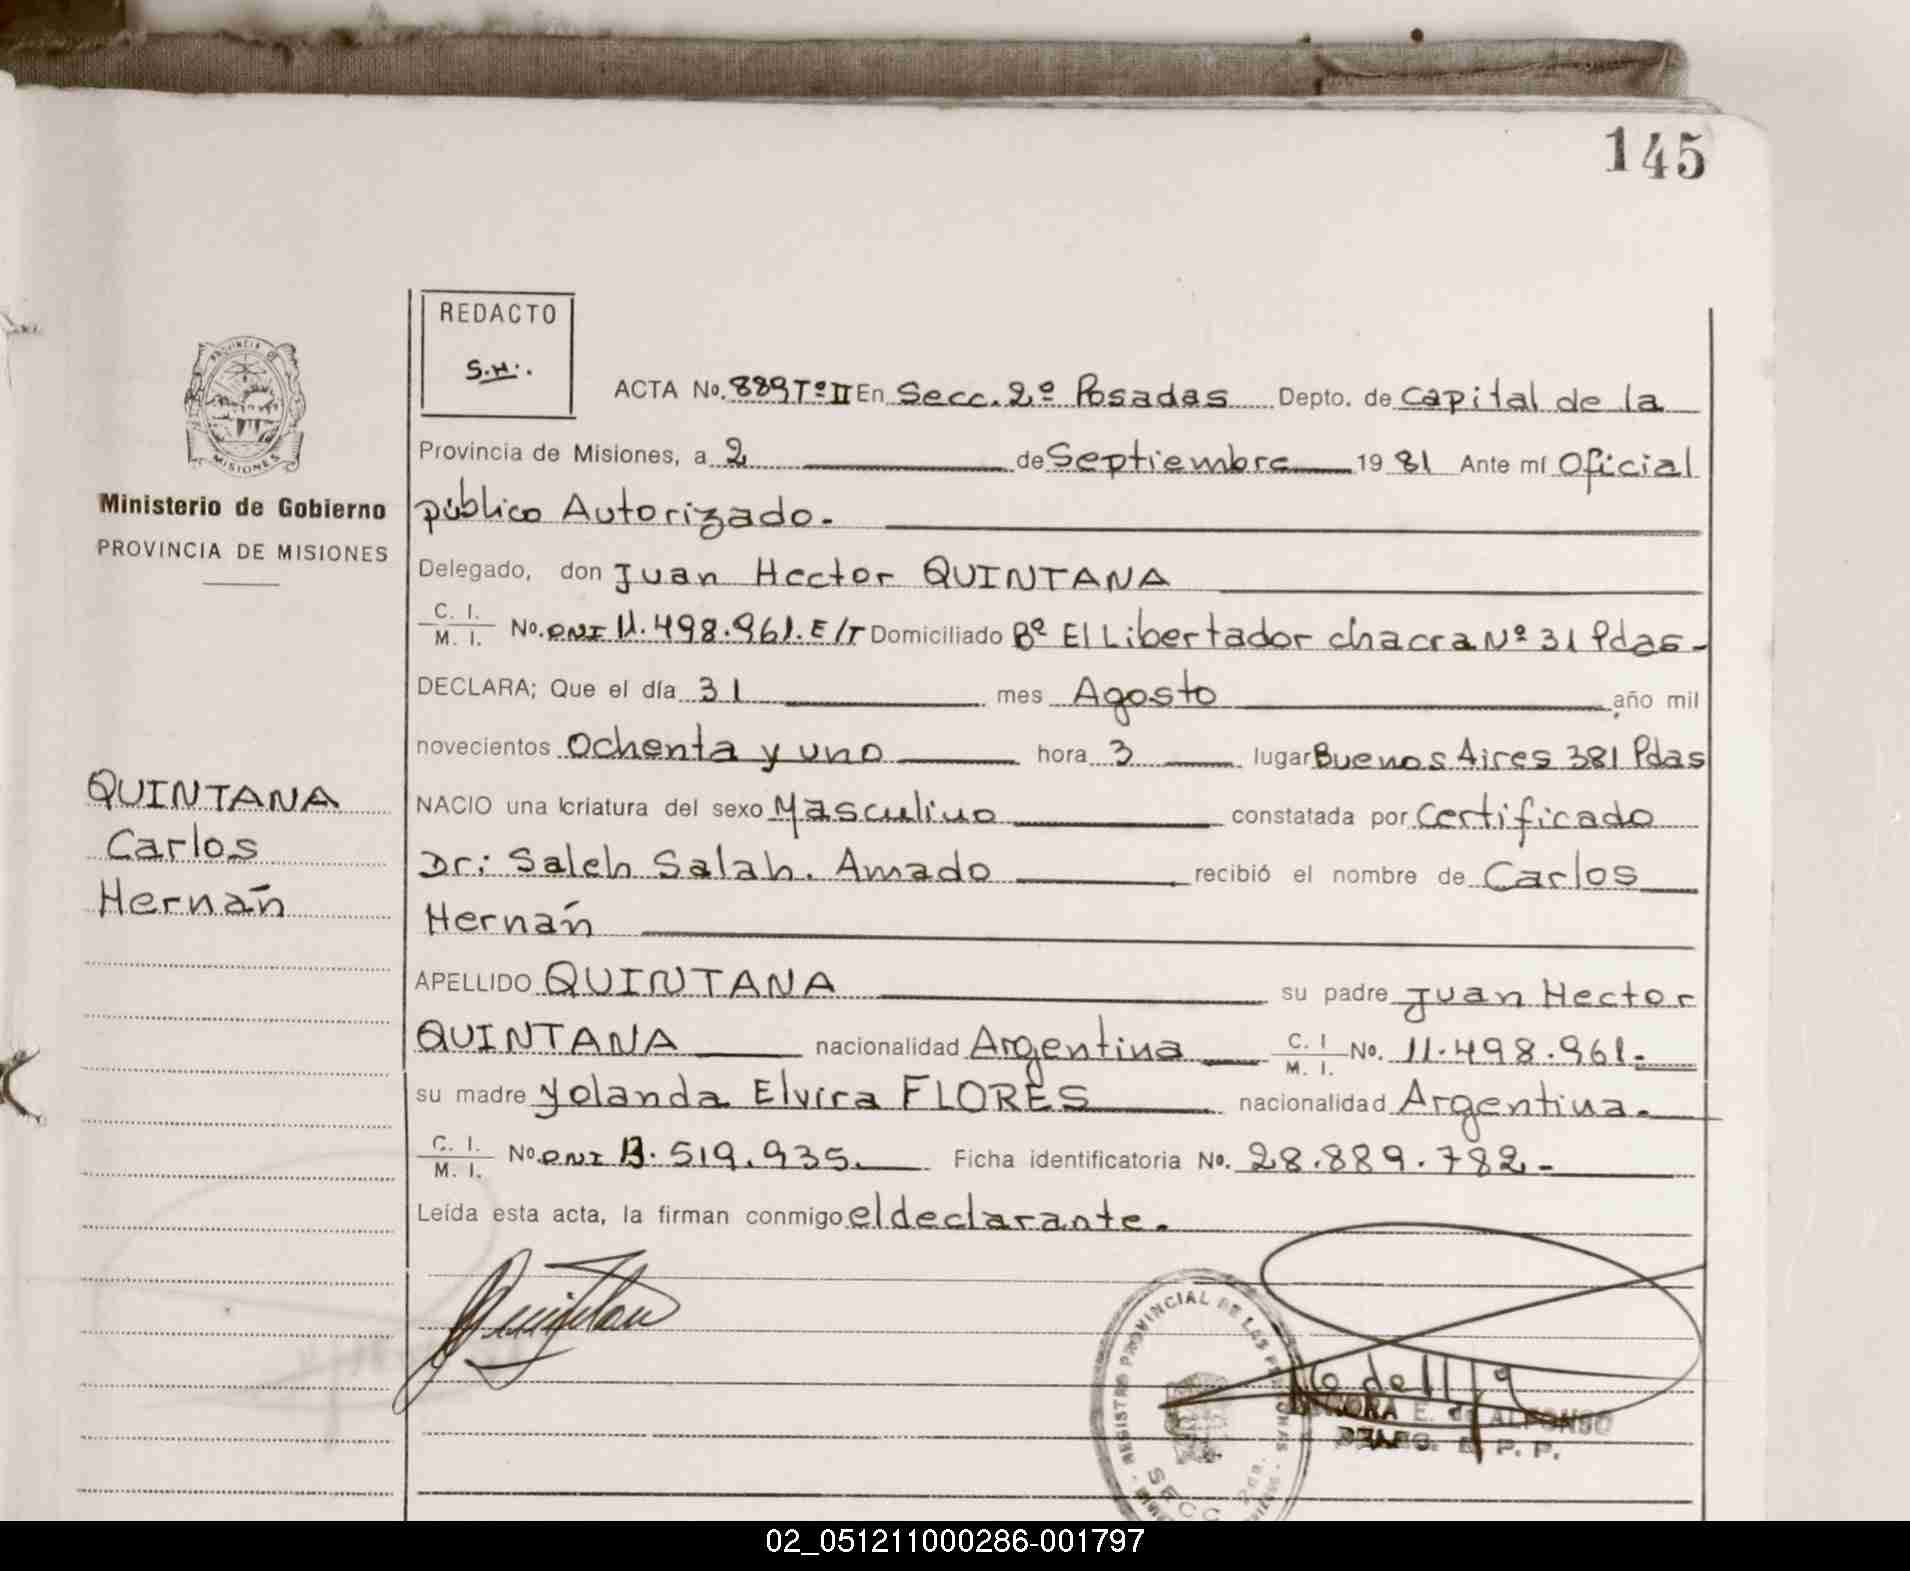 145
REDACTO
S.H.
PROVINCIA DE
MISIONES
ACTA No. 889 Tº II En Secc. 2º Posadas Depto. de Capital de la
Provincia de Misiones, a 2 de Septiembre 19 81 Ante mí Oficial
Ministerio de Gobierno
público Autorizado.
PROVINCIA DE MISIONES
Delegado, don Juan Hector QUINTANA
C. I.
M. I. No. DNI 11.498.961. E/T Domiciliado Bº El Libertador chacra Nº 31 Pdas-
DECLARA; Que el día 31 mes Agosto año mil
novecientos Ochenta y uno hora 3 lugar Buenos Aires 381 Pdas
QUINTANA
Carlos
Hernán
NACIO una criatura del sexo Masculino constatada por Certificado
Dr: Saleh Salah. Amado recibió el nombre de Carlos
Hernán
APELLIDO QUINTANA su padre Juan Hector
QUINTANA nacionalidad Argentina C. I M. I. No. 11.498.961.-
su madre Yolanda Elvira FLORES nacionalidad Argentina.
C. I.
M. I. No. DNI 13.519.935. Ficha identificatoria No. 28.889.782.-
Leída esta acta, la firman conmigo el declarante.
REGISTRO PROVINCIAL DE LAS PERSONAS
SECC 2da.
E. de ALFONSO
P. P.
02_051211000286-001797